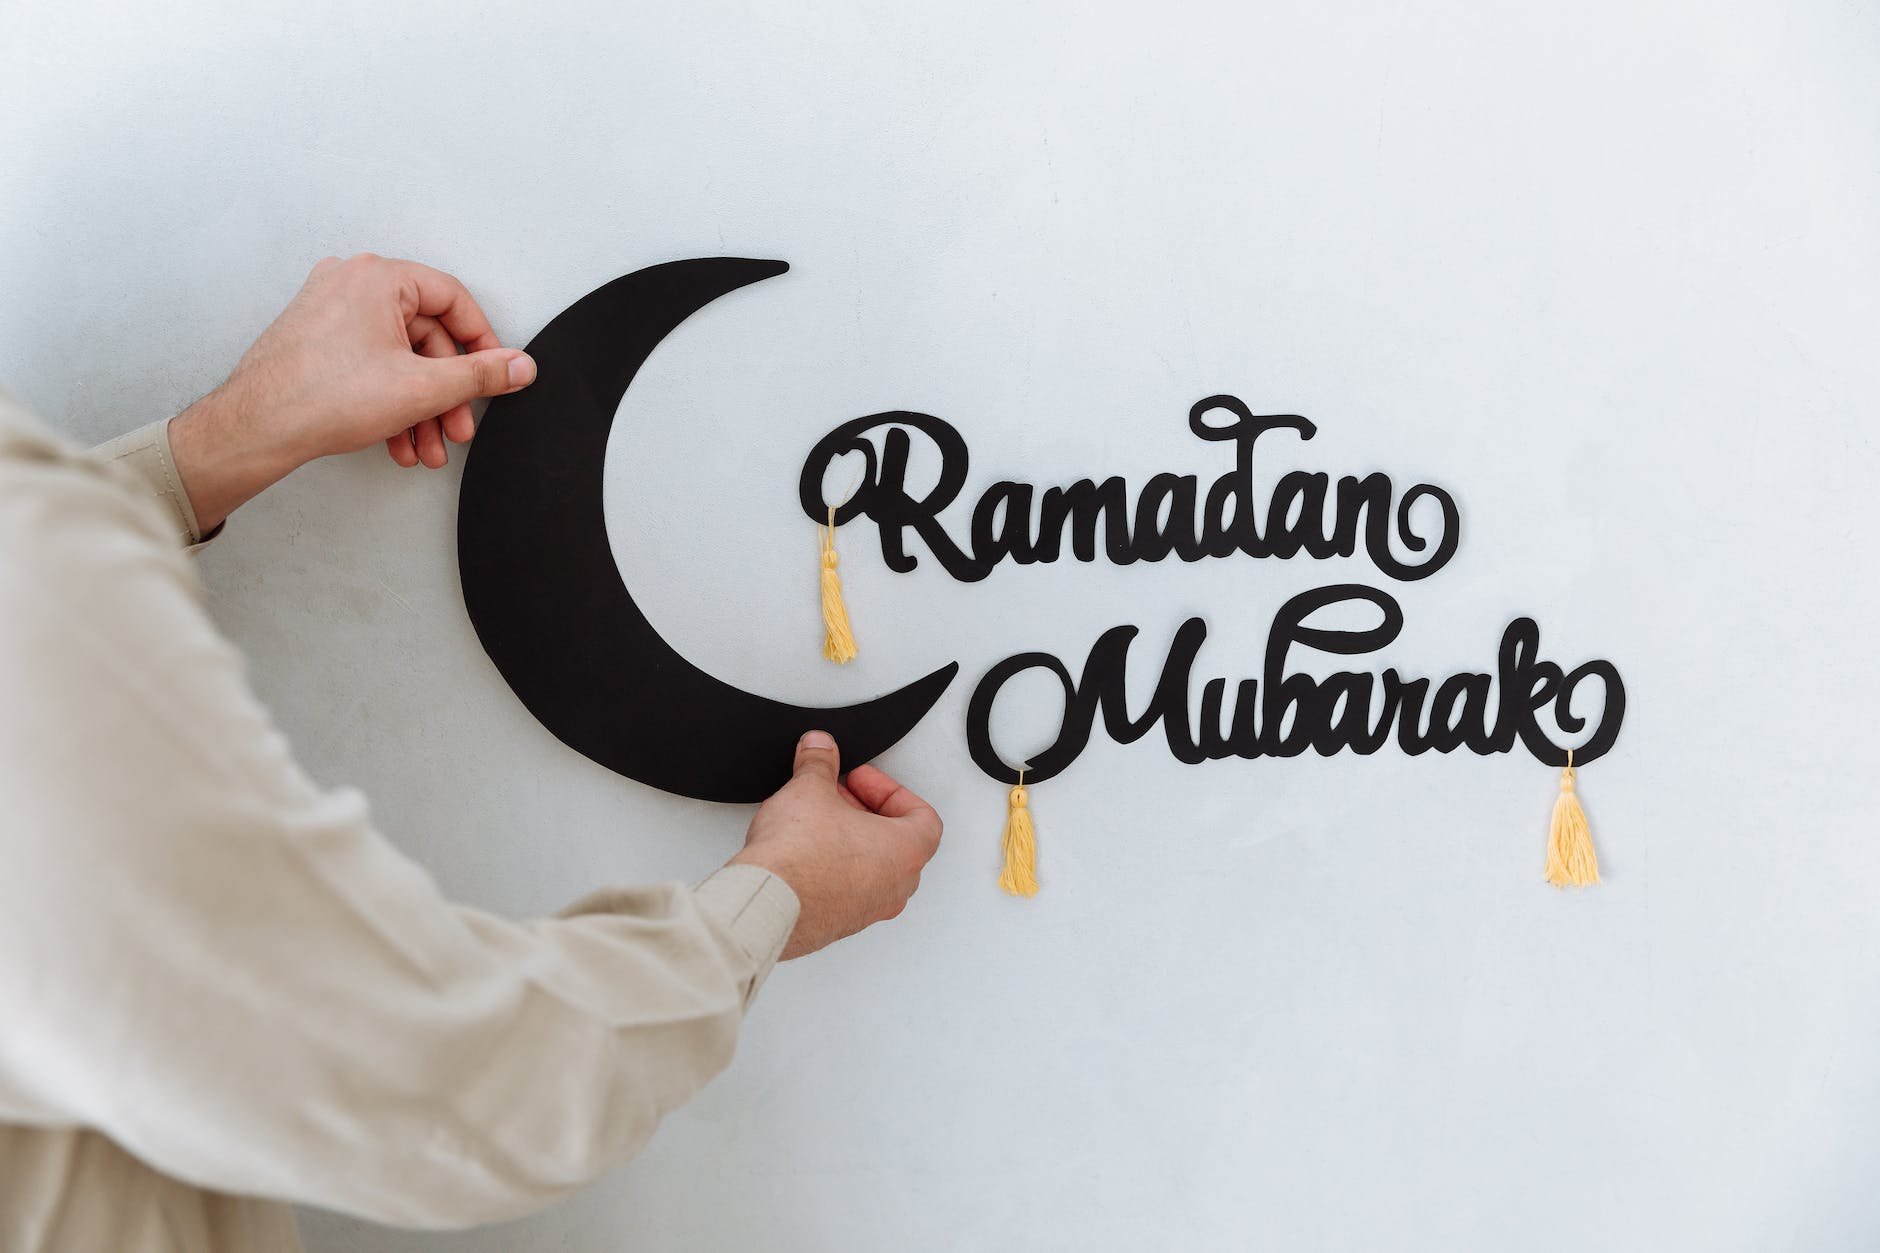 Ramadan
Mubarak